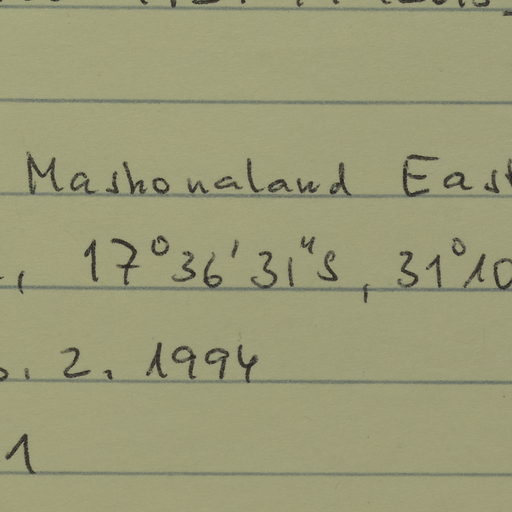 Mashonaland East
, 17°36'31"S, 31°10
. 2. 1994
1